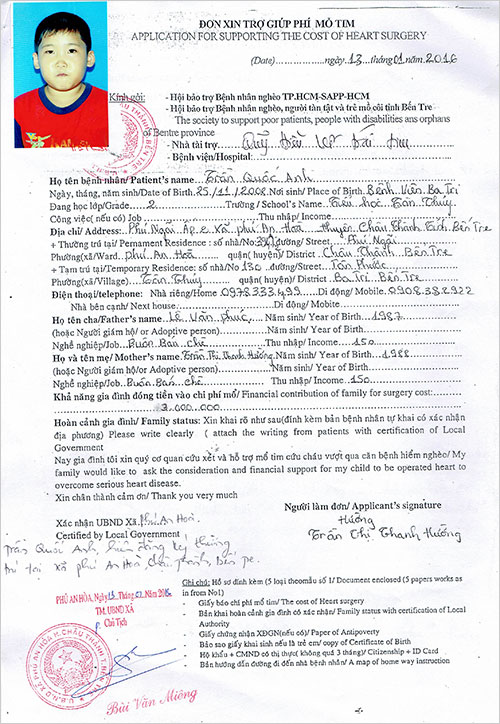 ĐƠN XIN TRỢ GIÚP PHÍ MỔ TIM
APPLICATION FOR SUPPORTING THE COST OF HEART SURGERY
(Date)...............ngày..13...tháng01.năm.2016
Kính gửi: - Hội bảo trợ Bệnh nhân nghèo TP.HCM-SAPP-HCM
- Hội bảo trợ Bệnh nhân nghèo, người tàn tật và trẻ mồ côi tỉnh Bến Tre
The society to support poor patients, people with disabilities ans orphans
of Bentre province
- Nhà tài trợ
- Bệnh viện/Hospital:
Họ tên bệnh nhân/ Patient's name Trần Quốc Anh
Ngày, tháng, năm sinh/Date of Birth. 25/11/2008 Nơi sinh/ Place of Birth Bệnh Viện Ba Tri
Đang học lớp/Grade 2 Trường / School's Name Tiểu học Tân Thủy
Công việc( nếu có) Job Thu nhập/ Income
Địa chỉ/ Address: Phú Ngãi Ap.e xã phú An Hoà Huyện Châu Thành Tỉnh Bến Tre
+ Thường trú tại/ Permanent Residence : số nhà/No đường/ Street Phú Ngãi
Phường(xã/Ward phú An Hoà quận( huyện)/ District Châu Thành Bến Tre
+ Tạm trú tại/Temporary Residence: số nhà/No 130 .đường/Street Tân Phước
Phường(xã/Village) Tân Thủy quận( huyện)/ District Ba Tri Bến Tre
Điện thoại/telephone: Nhà riêng/Home 0978333499 Di động/ Mobile 0908382922
Nhà bên cạnh/ Next house Di động/ Mobite
Họ tên cha/Father's name Lê Văn phúc Năm sinh/ Year of Birth 1987
(hoặc Người giám hộ/ or Adoptive person) Năm sinh/ Year of Birth
Nghề nghiệp/Job Buôn Bán chè Thu nhập/ Income 150
Họ và tên mẹ/ Mother's name Trần Thị Thanh Hương Năm sinh/ Year of Birth 1988
(hoặc Người giám hộ/or Adoptive person Năm sinh/ Year of Birth
Nghề nghiệp/Job Buôn Bán chè Thu nhập/ Income 150
Khả năng gia đình đóng tiền vào chi phí mổ/ Financial contribution of family for surgery cost:
3.000.000
Hoàn cảnh gia đình/ Family status: Xin khai rõ như sau(đính kèm bản bệnh nhân tự khai có xác nhận
địa phương) Please write clearly ( attach the writing from patients with certification of Local
Government
Nay gia đình tôi xin quý cơ quan cứu xét và hỗ trợ mổ tim cứu cháu vượt qua căn bệnh hiểm nghèo/ My
family would like to ask the consideration and financial support for my child to be operated heart to
overcome serious heart disease.
Xin chân thành cảm ơn/ Thank you very much
Người làm đơn/ Applicant's signature
Hương
Trần Thị Thanh Hương
Xác nhận UBND Xã Phú An Hoà
Certified by Local Government
Trần Quốc Anh, hiện đăng ký thường
trú tại xã phú An Hoà
PHÚ AN HÒA, Ngày 13 tháng 01 năm 2016
TM. UBND XÃ
Chủ Tịch
Bùi Văn Miêng
Ghi chú: Hồ sơ đính kèm (5 loại theomẫu số 1/ Document enclosed (5 papers works as
in from No1)
- Giấy báo chi phí mổ tim/ The cost of Heart surgery
- Bản khai hoàn cảnh gia đình có xác nhận/ Family status with certification of Local
Authority
- Giấy chứng nhận XĐGN(nếu có)/ Paper of Antipoverty
- Bảo sao giấy khai sinh nếu là trẻ em/ copy of Certificate of Birth
- Hộ khẩu + CMND có thị thực( không quá 3 tháng)/ Citizenship + ID Card
- Bản hướng dẫn đường đi đến nhà bệnh nhân/ A map of home way instruction